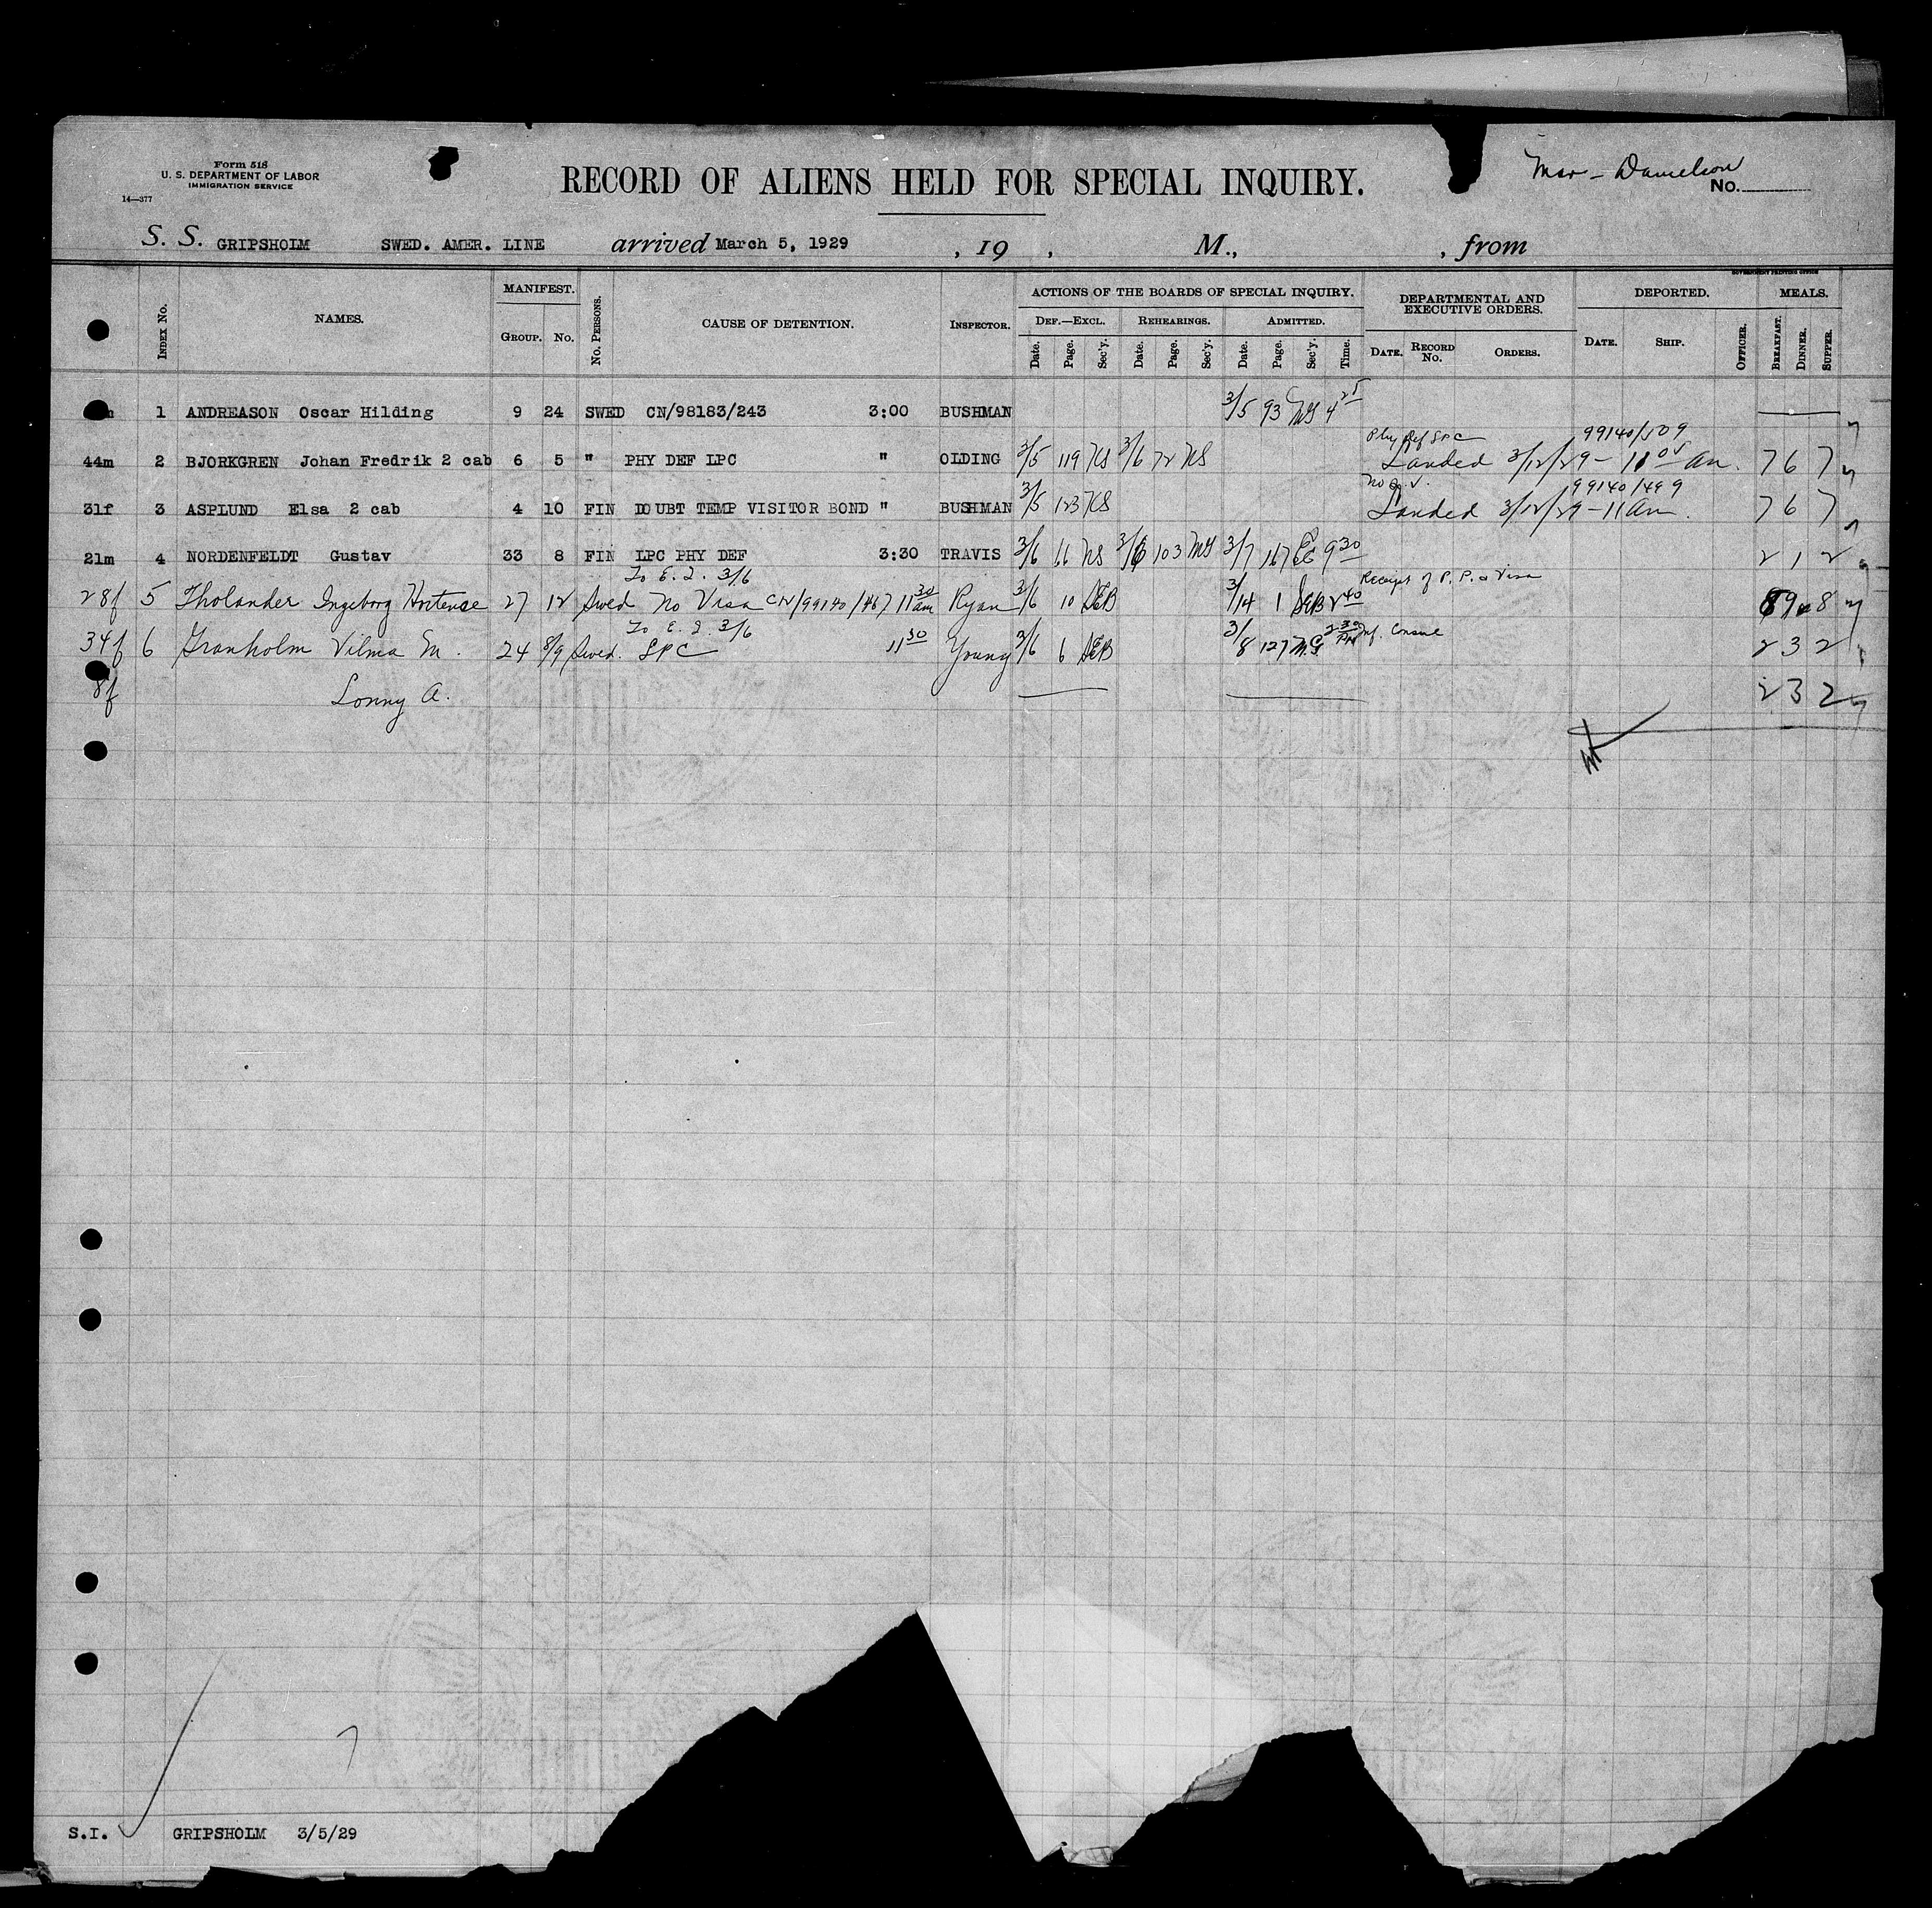 Form 518
U. S. DEPARTMENT OF LABOR
IMMIGRATION SERVICE
14—377
RECORD OF ALIENS HELD FOR SPECIAL INQUIRY.
Danielson
No.
S. S. GRIPSHOLM SWED. AMER. LINE arrived March 5, 1929 , 19 , M., , from
GOVERNMENT PRINTING OFFICE
INDEX No. NAMES. MANIFEST. GROUP. No. No. PERSONS. CAUSE OF DETENTION. INSPECTOR. ACTIONS OF THE BOARDS OF SPECIAL INQUIRY. DEPARTMENTAL AND EXECUTIVE ORDERS. DEPORTED. MEALS.
DEF.—EXCL. REHEARINGS. ADMITTED.
Date. Page. Sec'y. Date. Page. Sec'y. Date. Page. Sec'y. Time. DATE. RECORD No. ORDERS. DATE. SHIP. OFFICER. BREAKFAST. DINNER. SUPPER.
1 ANDREASON Oscar Hilding 9 24 SWED CN/98183/243 3:00 BUSHMAN 3/5 93 MG 4 25
Phy Def LPC 99140/509
44m 2 BJORKGREN Johan Fredrik 2 cab 6 5 " PHY DEF LPC " OLDING 3/5 119 NS 3/6 72 NS Landed 3/12/29 - 11 05 am. 7 6 7
99140/499
31f 3 ASPLUND Elsa 2 cab 4 10 FIN DOUBT TEMP VISITOR BOND " BUSHMAN 3/5 123 NS Landed 3/12/29 - 11 am. 7 6 7
21m 4 NORDENFELDT Gustav 33 8 FIN LPC PHY DEF 3:30 TRAVIS 3/6 66 NS 3/6 103 MG 3/7 167 9 30 2 1 2
To E. I. 3/6 Receipt of P. P. & Visa
28f 5 Tholander Ingeborg Hortense 27 12 Swed No Visa CN/99140/467 11 30 am Ryan 3/6 10 SEB 3/14 1 SEB 2 40 8 9 8
To E. I. 3/6
34f 6 Granholm Vilma M. 24 8/9 Swed. LPC 11 30 Young 3/6 6 SEB 3/8 127 M.G. 2 30 PM 2 3 2
8f Lonny A. 2 3 2
S.I. GRIPSHOLM 3/5/29